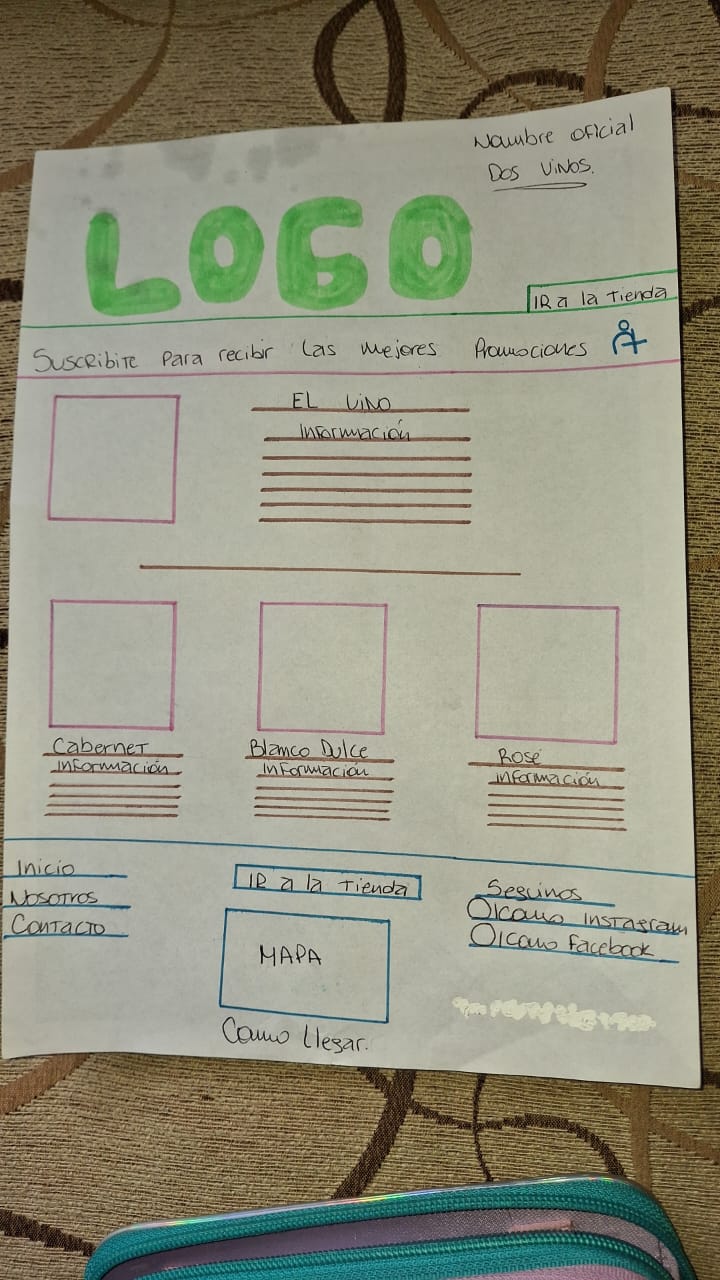 Nombre oficial
Dos Vinos.
LOGO
IR a la Tienda
Suscribite Para recibir Las Mejores Promociones
EL VINO
Información
Cabernet
Información
Blanco Dulce
Información
Rosé
Información
Inicio
Nosotros
Contacto
IR a la Tienda
MAPA
Como Llegar.
Seguinos
Oicono Instagram
Oicono Facebook